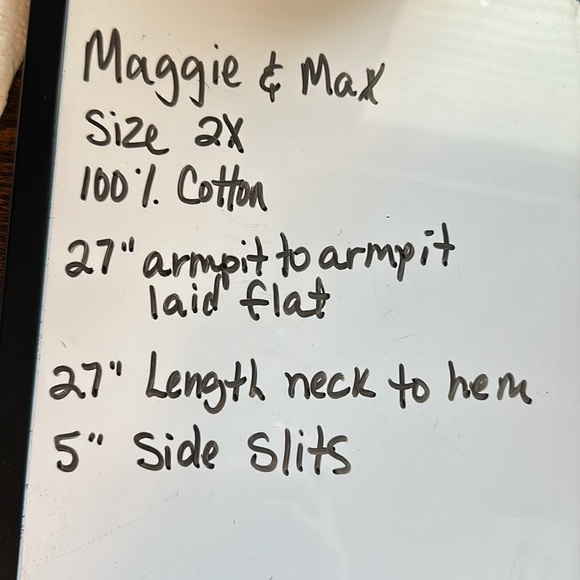 Maggie & Max
Size 2X
100% Cotton
27" armpit to armpit
laid flat
27" Length neck to hem
5" Side Slits